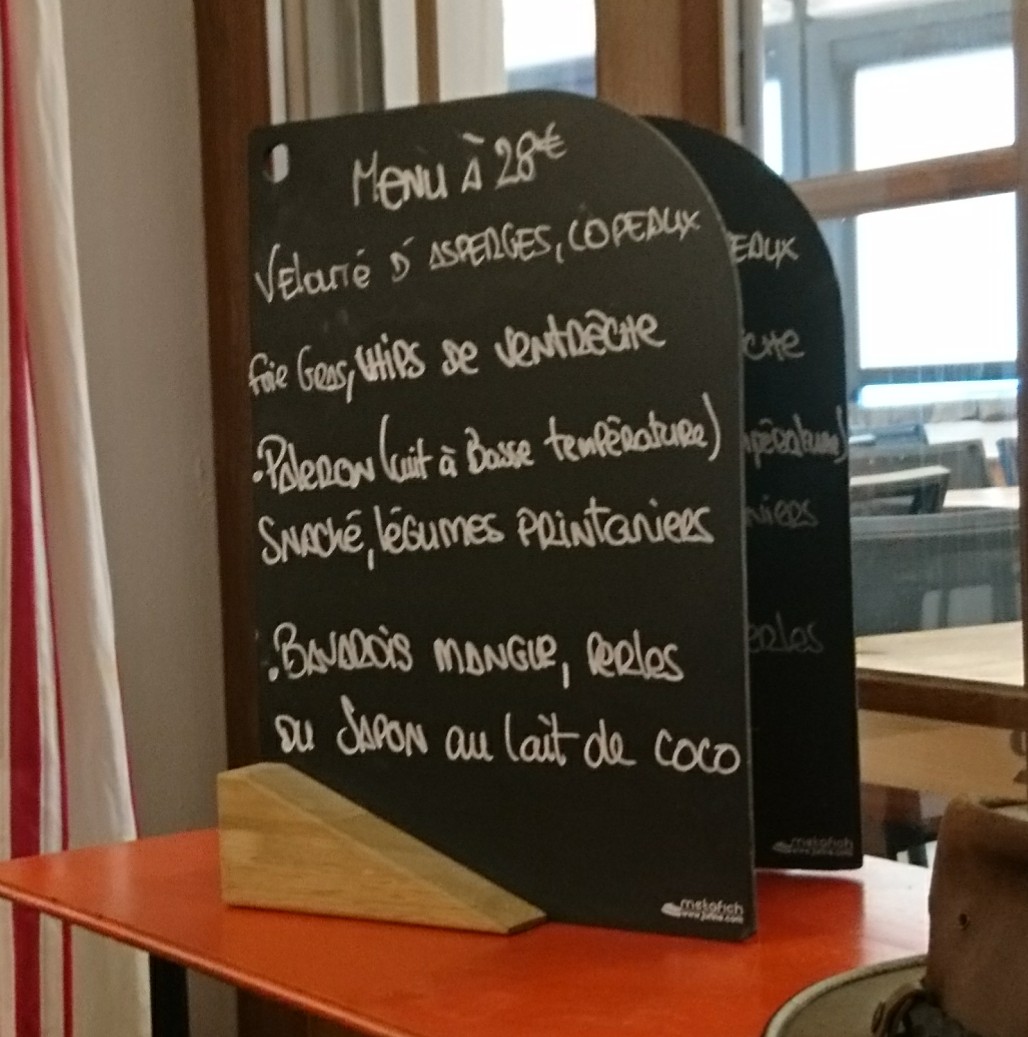 Menu à 28€
Velouté d'asperges, copeaux
foie gras, chips de ventrèche
. Paleron (cuit à basse température)
snacké, légumes printaniers
. Bavarois mangue, perles
du Japon au lait de coco
metafich
eaux
che
mpérature)
niers
erles
metafich